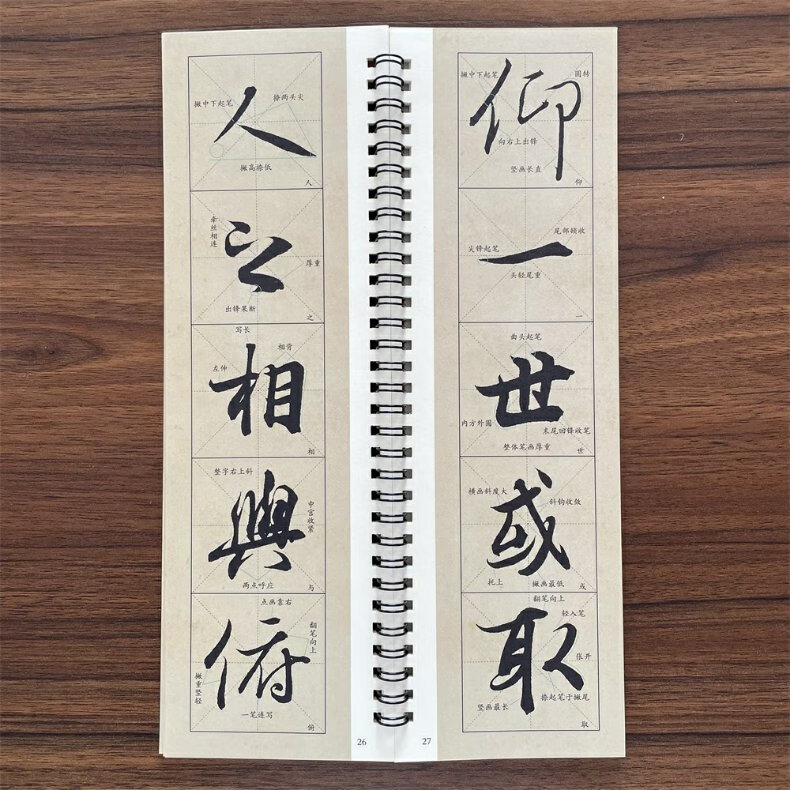 人
撇中下起笔
捺两头尖
撇高捺低
人
之
牵丝相连
厚重
出锋果断
之
相
写长
相背
左伸
相
與
整字右上斜
中宫收紧
两点呼应
与
俯
点画靠右
翻笔向上
撇重竖轻
一笔连写
俯
26
仰
撇中下起笔
圆转
向右上出锋
竖画长直
仰
一
尾部顿收
尖锋起笔
头轻尾重
一
世
曲头起笔
内方外圆
末尾回锋收笔
整体笔画厚重
世
或
横画斜度大
斜钩收敛
托上
撇画最低
或
取
翻笔向上
轻入笔
张开
捺起笔于撇尾
竖画最长
取
27